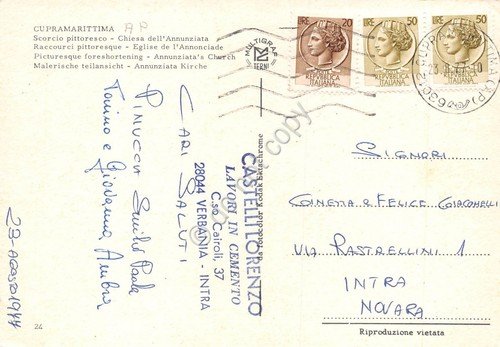 CUPRAMARITTIMA
AP
Scorcio pittoresco - Chiesa dell'Annunziata
Raccourci pittoresque - Eglise de l'Annonciade
Picturesque foreshortening - Annunziata's Church
Malerische teilansicht - Annunziata Kirche
MULTIGRAF
TERNI
LIRE 20
REPUBBLICA
ITALIANA
LIRE 50
REPUBBLICA
ITALIANA
LIRE 50
REPUBBLICA
ITALIANA
CARI SALUTI
PINUCCIA Emilio Paola
Tonino e Giovanna Ambra
23-AGOSTO 1977
CASTELLI LORENZO
LAVORI IN CEMENTO
C.so Cairoli, 37
28044 VERBANIA - INTRA
da fotocolor Kodak Ektachrome
copy
SIGNORI
GINETTA & FELICE GIACOMELLI
VIA RASTRELLINI 1
INTRA
NOVARA
24
Riproduzione vietata